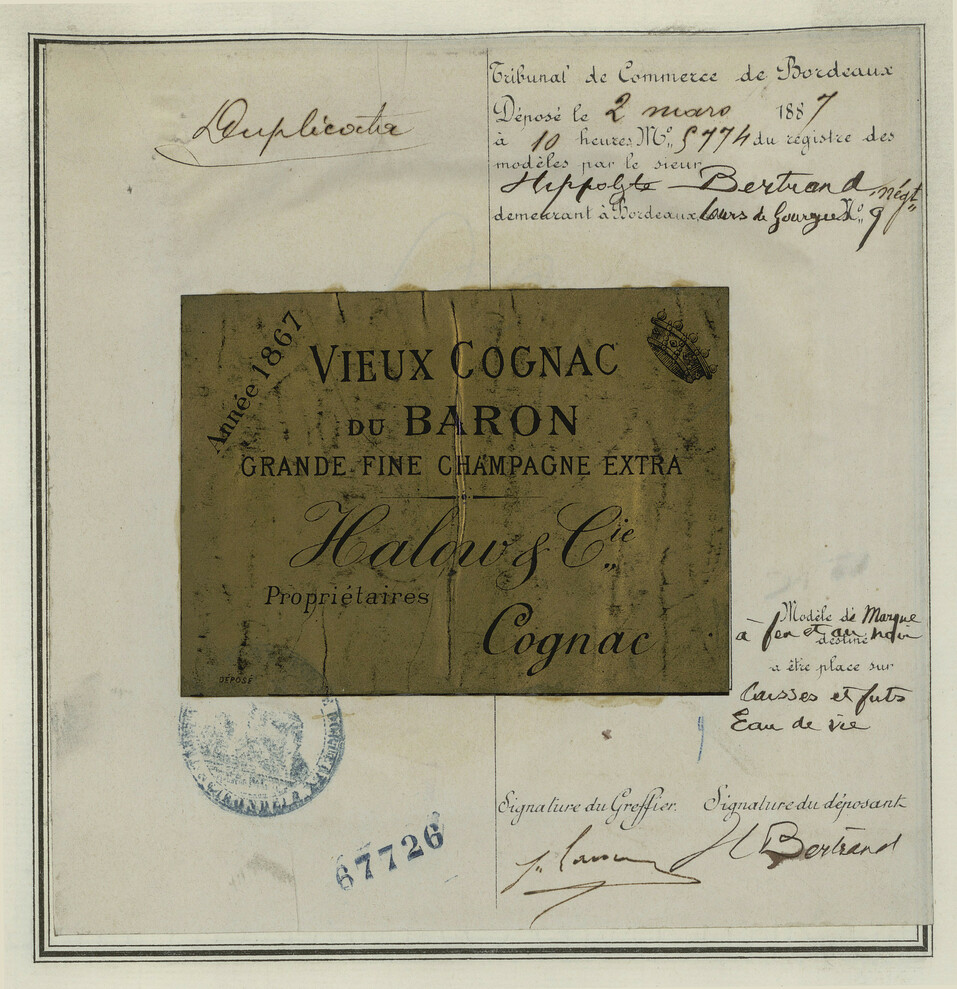 Duplicata
Tribunal de Commerce de Bordeaux
Déposé le 2 mars 1887
à 10 heures M. No. 5774 du registre des
modèles par le sieur
Hippolyte Bertrand, négt
demeurant à Bordeaux, Cours de Gourgue No. 9
Année 1867
VIEUX COGNAC
DU BARON
GRANDE FINE CHAMPAGNE EXTRA
Halow & Cie
Propriétaires
Cognac
DÉPOSÉ
Modèle de Marque
à feu et au noir
destiné
a être place sur
Caisses et futs
Eau de vie
GIRONDE
Signature du Greffier. Signature du déposant
H Bertrand
67726